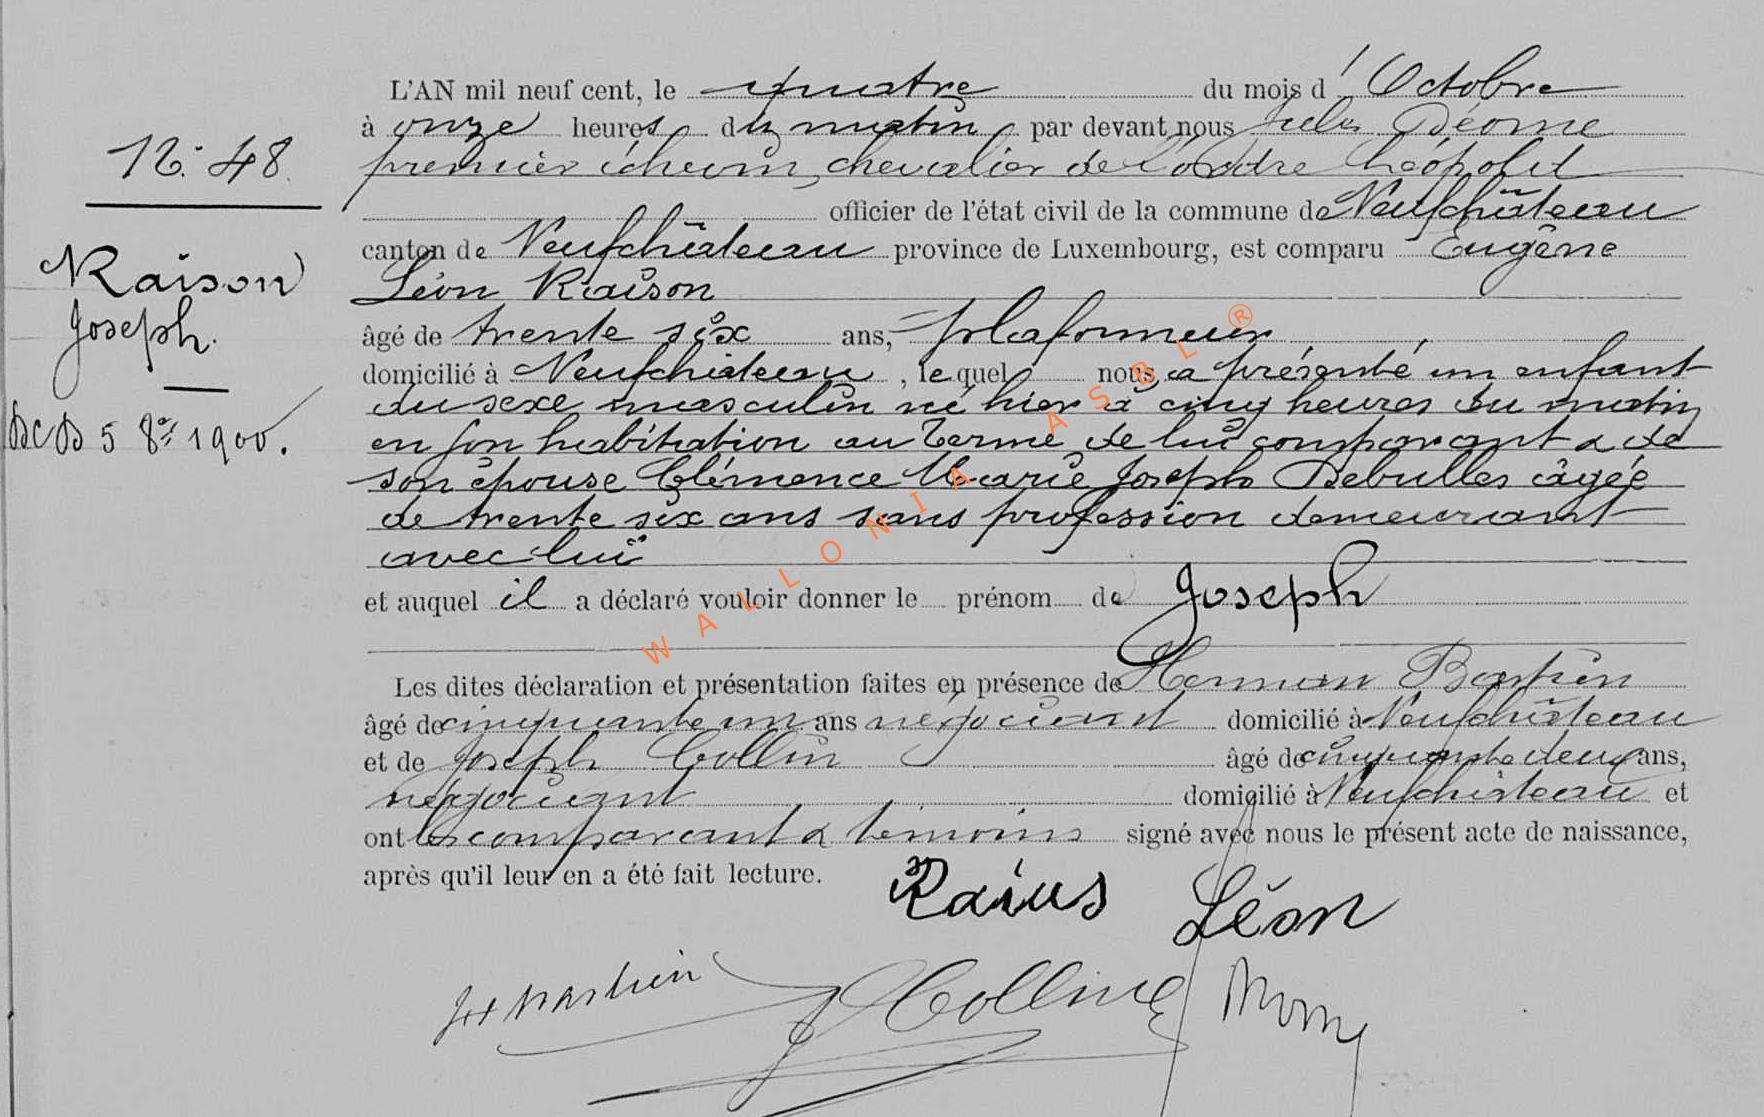 N° 48.
Raison
Joseph.
DCD 5 8bre 1900.
L'AN mil neuf cent, le quatre du mois d'Octobre
à onze heures du matin par devant nous Jules Déome
premier échevin, chevalier de l'ordre Léopold
officier de l'état civil de la commune de Neufchâteau
canton de Neufchâteau province de Luxembourg, est comparu Eugène
Léon Raison
âgé de trente six ans, plafonneur
domicilié à Neufchâteau, lequel nous a présenté un enfant
du sexe masculin né hier à cinq heures du matin
en son habitation au Terme de lui comparant & de
son épouse Clémence Marie Joseph Debulles âgée
de trente six ans sans profession demeurant
avec lui
et auquel il a déclaré vouloir donner le prénom de Joseph
Les dites déclaration et présentation faites en présence de Herman Bastien
âgé de cinquante un ans négociant domicilié à Neufchâteau
et de Joseph Collin âgé de cinquante deux ans,
négociant domicilié à Neufchâteau et
ont les comparant & témoins signé avec nous le présent acte de naissance,
après qu'il leur en a été fait lecture.
Raius Léon
Bastien Collin
WALLONIA ASBL ®